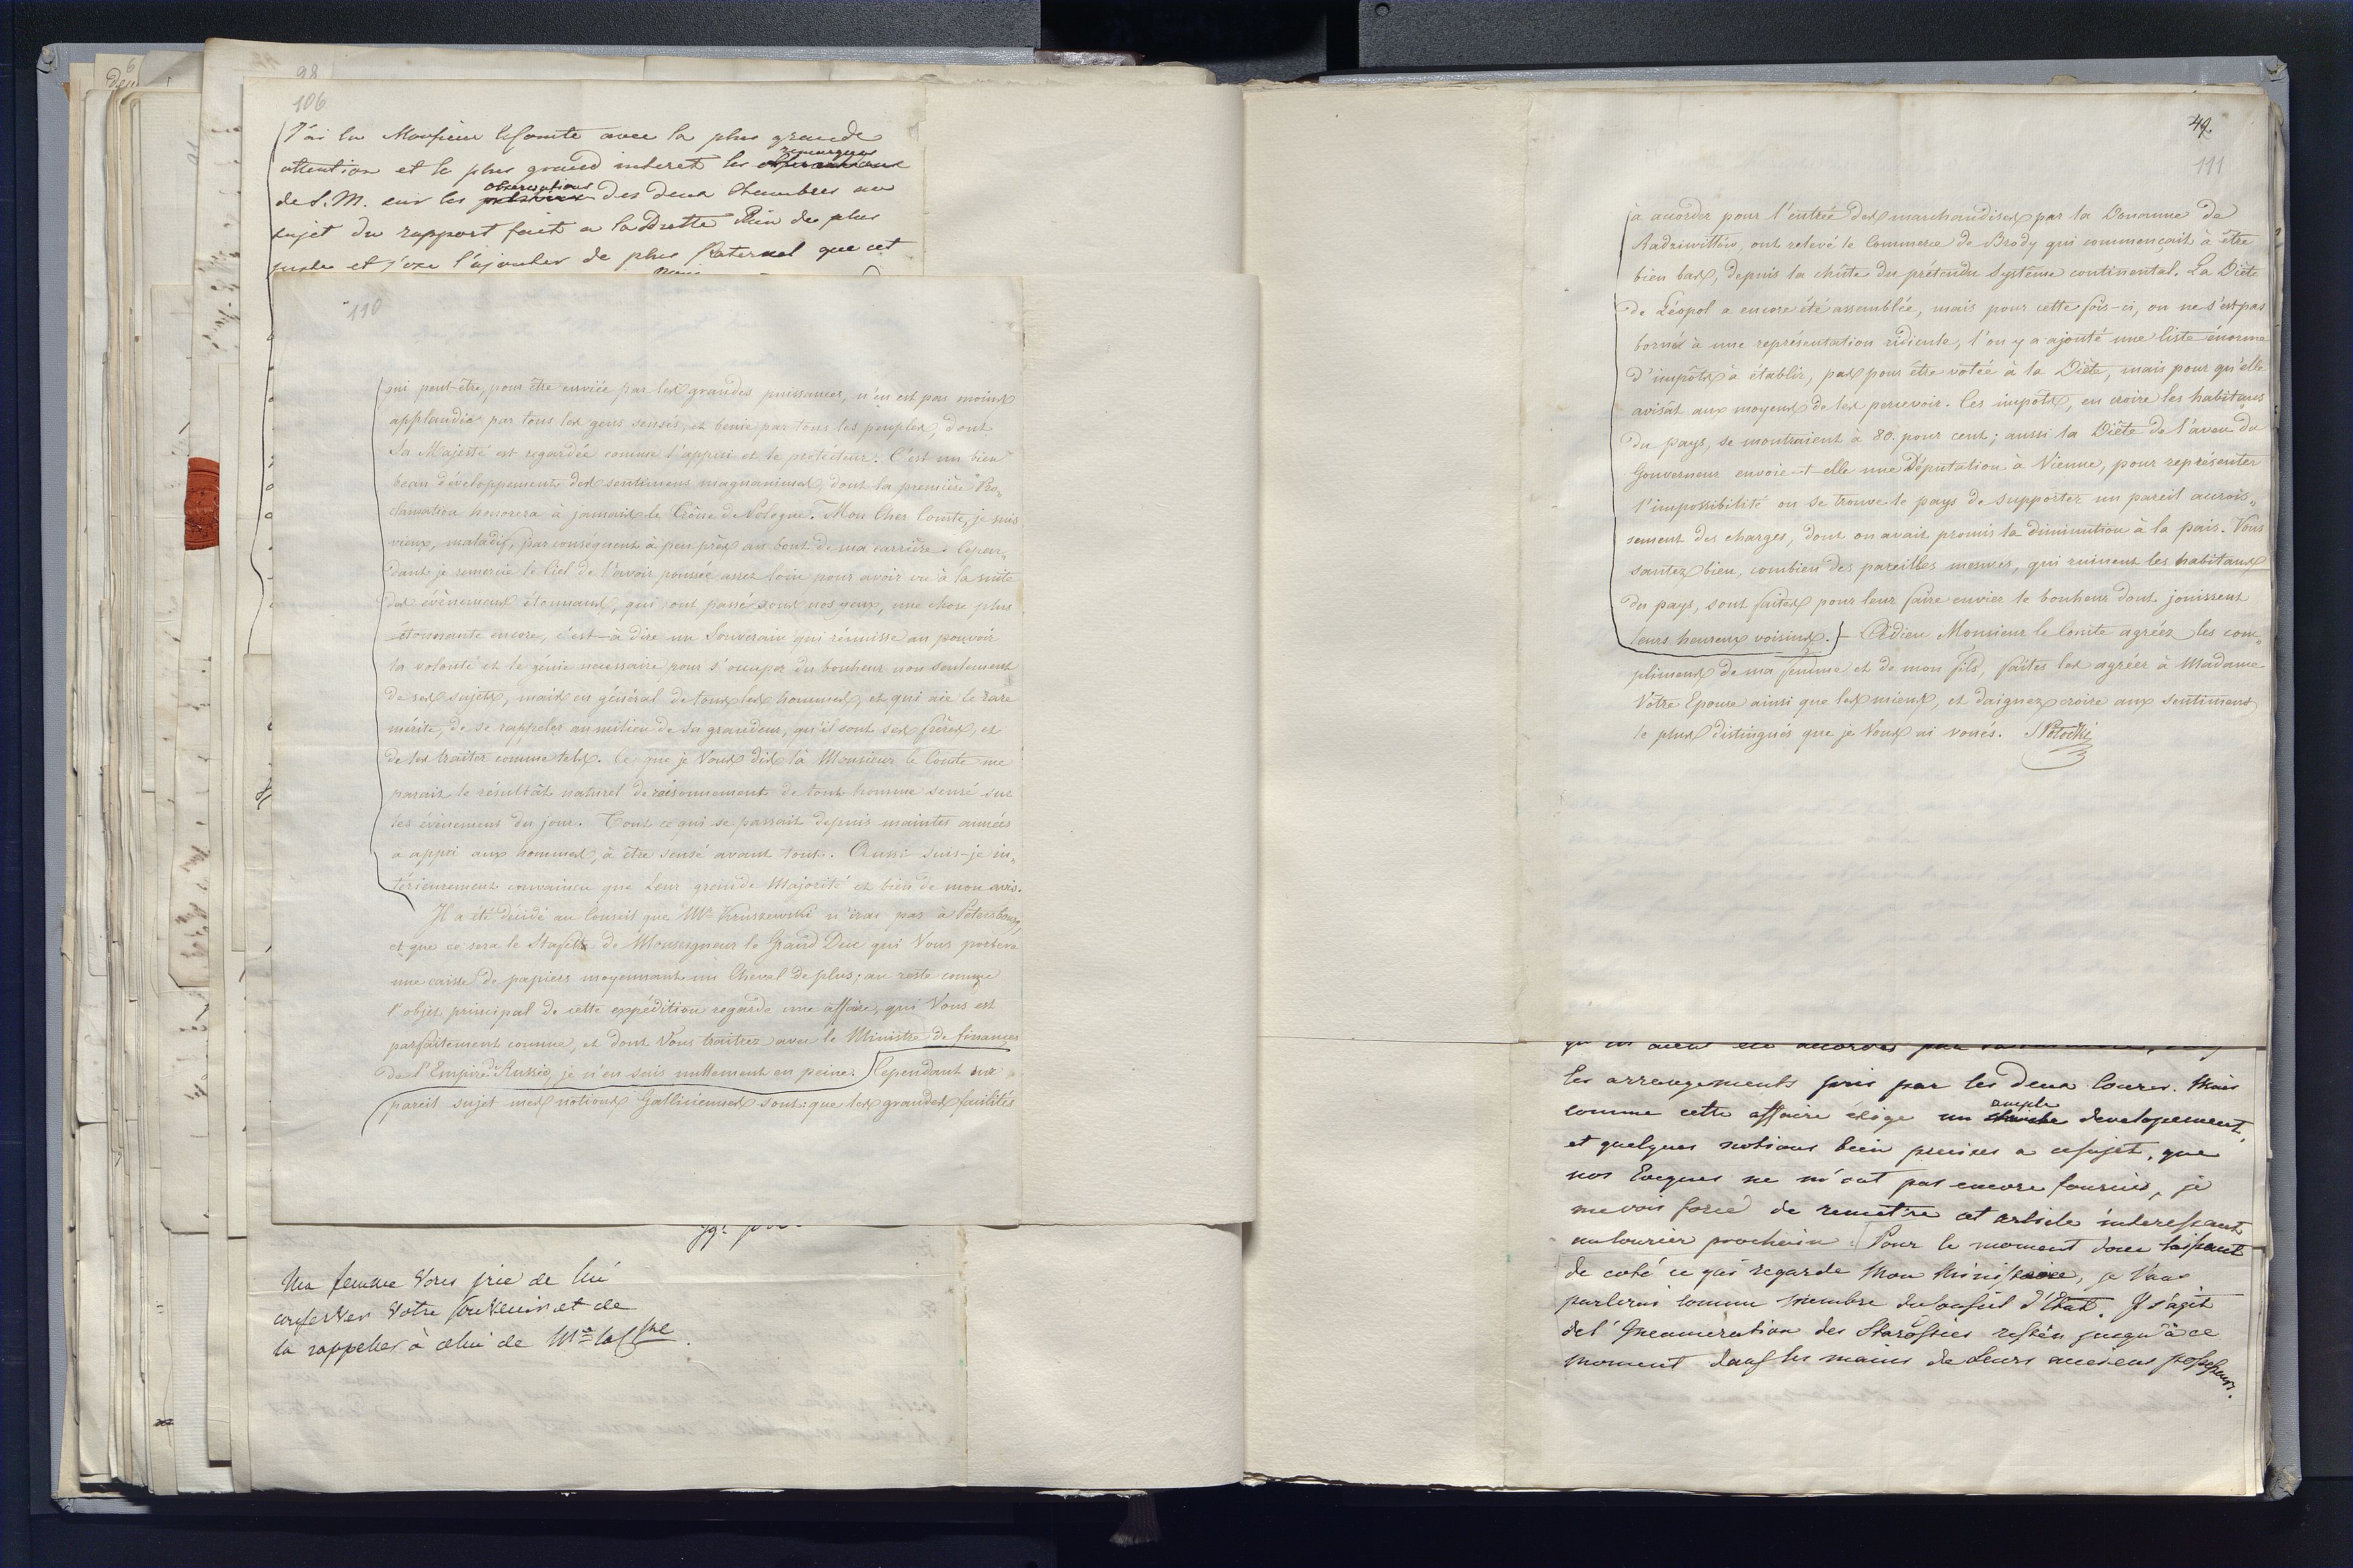 98
106
J'ai lu Monsieur le Comte avec la plus grande
attention et le plus grand interet les remarques
de S. M. sur les observations des deux Chambres au
sujet du rapport fait a la Diette Rien de plus
juste et j'ose l'ajouter de plus Paternel que cet
110
qui peut-être, pour être enviée par les grandes puissances, n'en est pas moins
applaudie par tous les gens sensés, et benie par tous les peuples, dont
Sa Majesté est regardée comme l'appui et le protecteur. C'est un bien
beau développement des sentimens magnanimes, dont la première Pro„
clamation honorera à jamais le Trône de Pologne. Mon Cher Comte, je suis
vieux, maladif, par conséquent à peu près au bout de ma carrière. Cepen„
dant je remercie le Ciel de l'avoir poussée assez loin pour avoir vu à la suite
des évènemens étonnans, qui ont passé sous nos yeux, une chose plus
étonnante encore, c'est-à dire un Souverain qui réunisse au pouvoir
la volonté et le génie necessaire pour s'occuper du bonheur non seulement
de ses sujets, mais en général de tous les hommes, et qui aie le rare
mérite, de se rappeler au milieu de sa grandeur, qu'il sont ses frères, et
de les traiter comme tels. Ce que je Vous dis là Monsieur le Comte me
parait le résultât naturel de raisonnement de tout homme sensé sur
les évènemens du jour. Tout ce qui se passait depuis maintes années
a appri aux hommes, à être sensé avant tout. Aussi suis-je in„
térieurement convaincu que leur grande Majorité est bien de mon avis.
Il a été décidé au Conseil que Mr Kruszewski n'iras pas à Petersbourg,
et que ce sera le Stafette de Monseigneur le Grand Duc qui Vous portera
une caisse de papiers moyennant un Cheval de plus; au reste comme
l'objet principal de cette expédition regarde une affaire, qui Vous est
parfaitement connue, et dont Vous traitrez avec le Ministre de finances
de l'Empire de Russie, je n'en suis nullement en peine. Cependant sur
pareil sujet mes notions Galliciennes sont: que les grandes facilités
Ma femme Vous prie de lui
conserver Votre souvenir et de
la rappeller à celui de Me la Csse.
49.
111
à accorder pour l'entrée des marchandises par la Douanne de
Radziwillów, ont relevé le Commerce de Brody qui commençait à être
bien bas, depuis la chûte du prétendu Système continental. La Diète
de Léopol a encore été assemblée, mais pour cette fois-ci, on ne s'est pas
borné à une représentation ridicule, l'on y a ajouté une liste énorme
d'impôts à établir, pas pour être votée à la Diète, mais pour qu'elle
avisât aux moyens de les percevoir. Ces impôts, en croire les habitans
du pays, se montraient à 80. pour cent; aussi la Diète de l'aveu du
Gouverneur envoie-t elle une Députation à Vienne, pour représenter
l'impossibilité ou se trouve le pays de supporter un pareil accrois„
sement des charges, dont on avait promis la diminution à la paix. Vous
santez bien, combien des pareilles mesures, qui ruinent les habitans
du pays, sont faites pour leur faire envier le bonheur dont jouissent
leurs heureux voisins. Adieu Monsieur le Comte agréez les com„
plimens de ma femme et de mon fils, faites les agréer à Madame
Votre Epouse ainsi que les miens, et daignez croire aux sentimens
le plus distingués que je Vous ai voués. SPotocki
les arrengements pris par les deux Coures. Mais
comme cette affaire éxige un ample developement,
et quelques notions bien precises a ce sujet, que
nos Eveques ne m'ont pas encore fournies, je
me vois forcé de remettre cet article interessant
au Courier prochain. Pour le moment donc laissant
de coté ce qui regarde Mon Ministere, je Vous
parlerai comme Membre du Conseil d'Etat. Il s'agit
de l'Incameration des Starosties restées jusqu'à ce
moment dans les mains de Leurs anciens possesseurs.